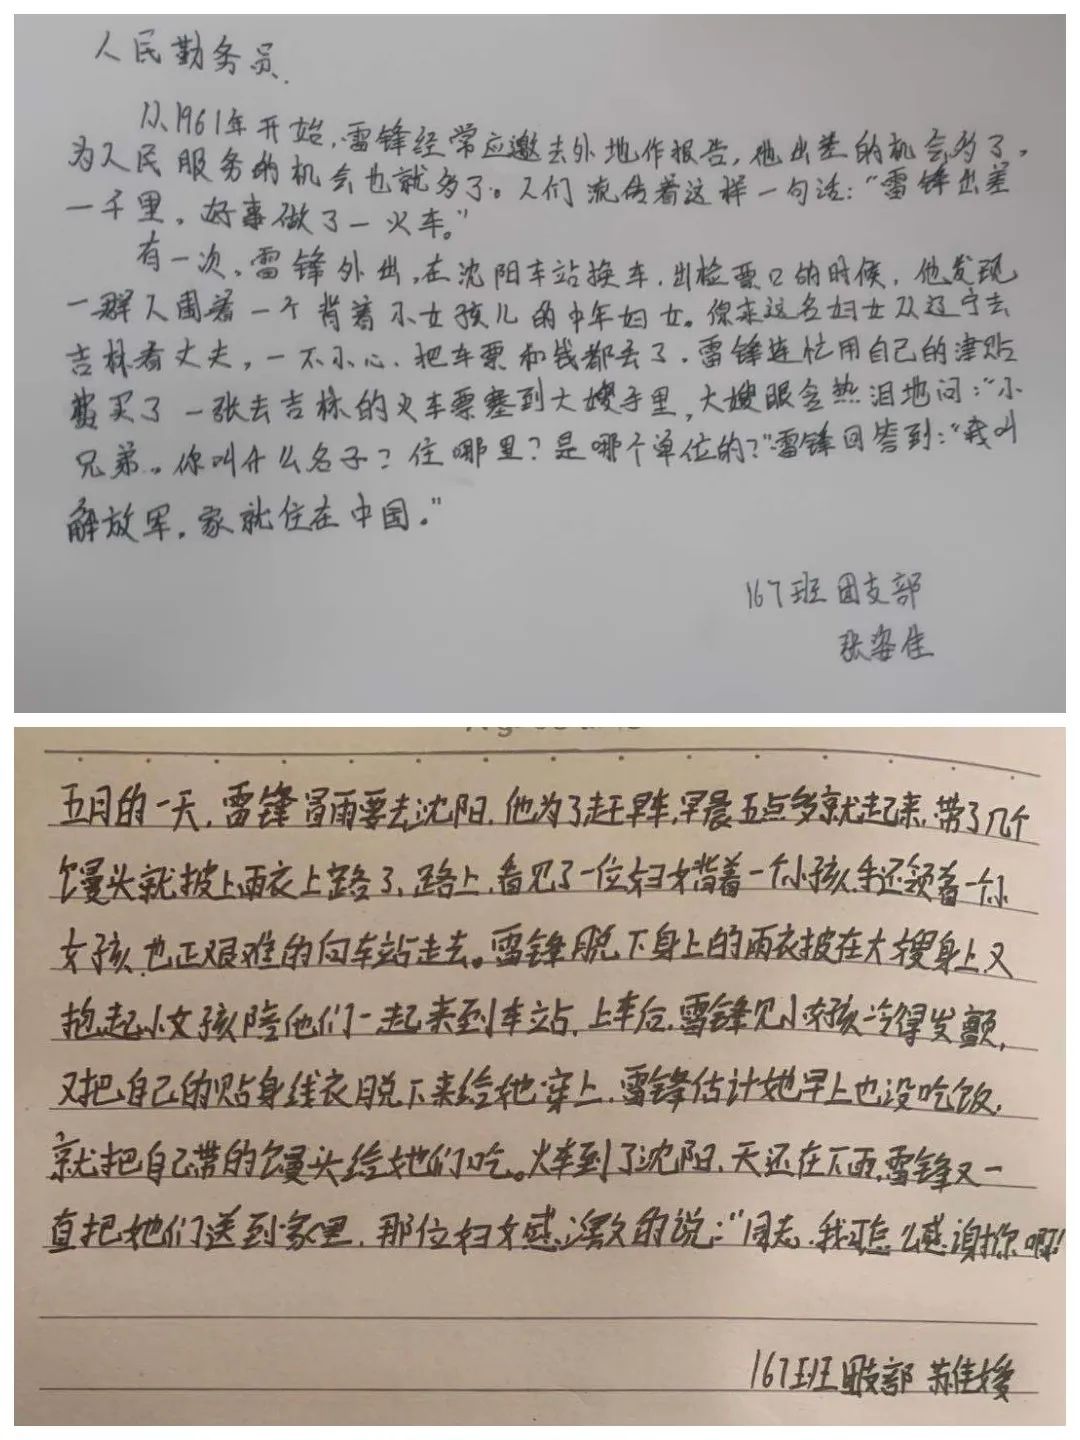 人民勤务员.
从1961年开始,雷锋经常应邀去外地作报告,他出差的机会多了,
为人民服务的机会也就多了。人们流传着这样一句话:“雷锋出差
一千里,好事做了一火车。”
有一次,雷锋外出,在沈阳车站换车,出检票口的时候,他发现
一群人围着一个背着小女孩儿的中年妇女。原来这名妇女从辽宁去
吉林看丈夫,一不小心、把车票和钱都丢了,雷锋连忙用自己的津贴
买了一张去吉林的火车票塞到大嫂手里,大嫂眼含热泪地问:“小
兄弟。你叫什么名子?住哪里?是哪个单位的?”雷锋回答到:“我叫
解放军,家就住在中国。”
167班团支部
张姿佳
五月的一天,雷锋冒雨要去沈阳,他为了赶早车,早晨五点多就起来,带了几个
馒头就披上雨衣上路了,路上,看见了一位妇女背着一个小孩,手还领着一个小
女孩,也正艰难的向车站走去。雷锋脱下身上的雨衣披在大嫂身上,又
抱起小女孩陪他们一起来到车站,上车后,雷锋见小女孩冷得发颤,
又把自己的贴身线衣脱下来给她穿上,雷锋估计她早上也没吃饭,
就把自己带的馒头给她们吃。火车到了沈阳,天还在下雨,雷锋又一
直把她们送到家里,那位妇女感激的说:“同志,我可怎么感谢你啊!
167班团支部 苏佳